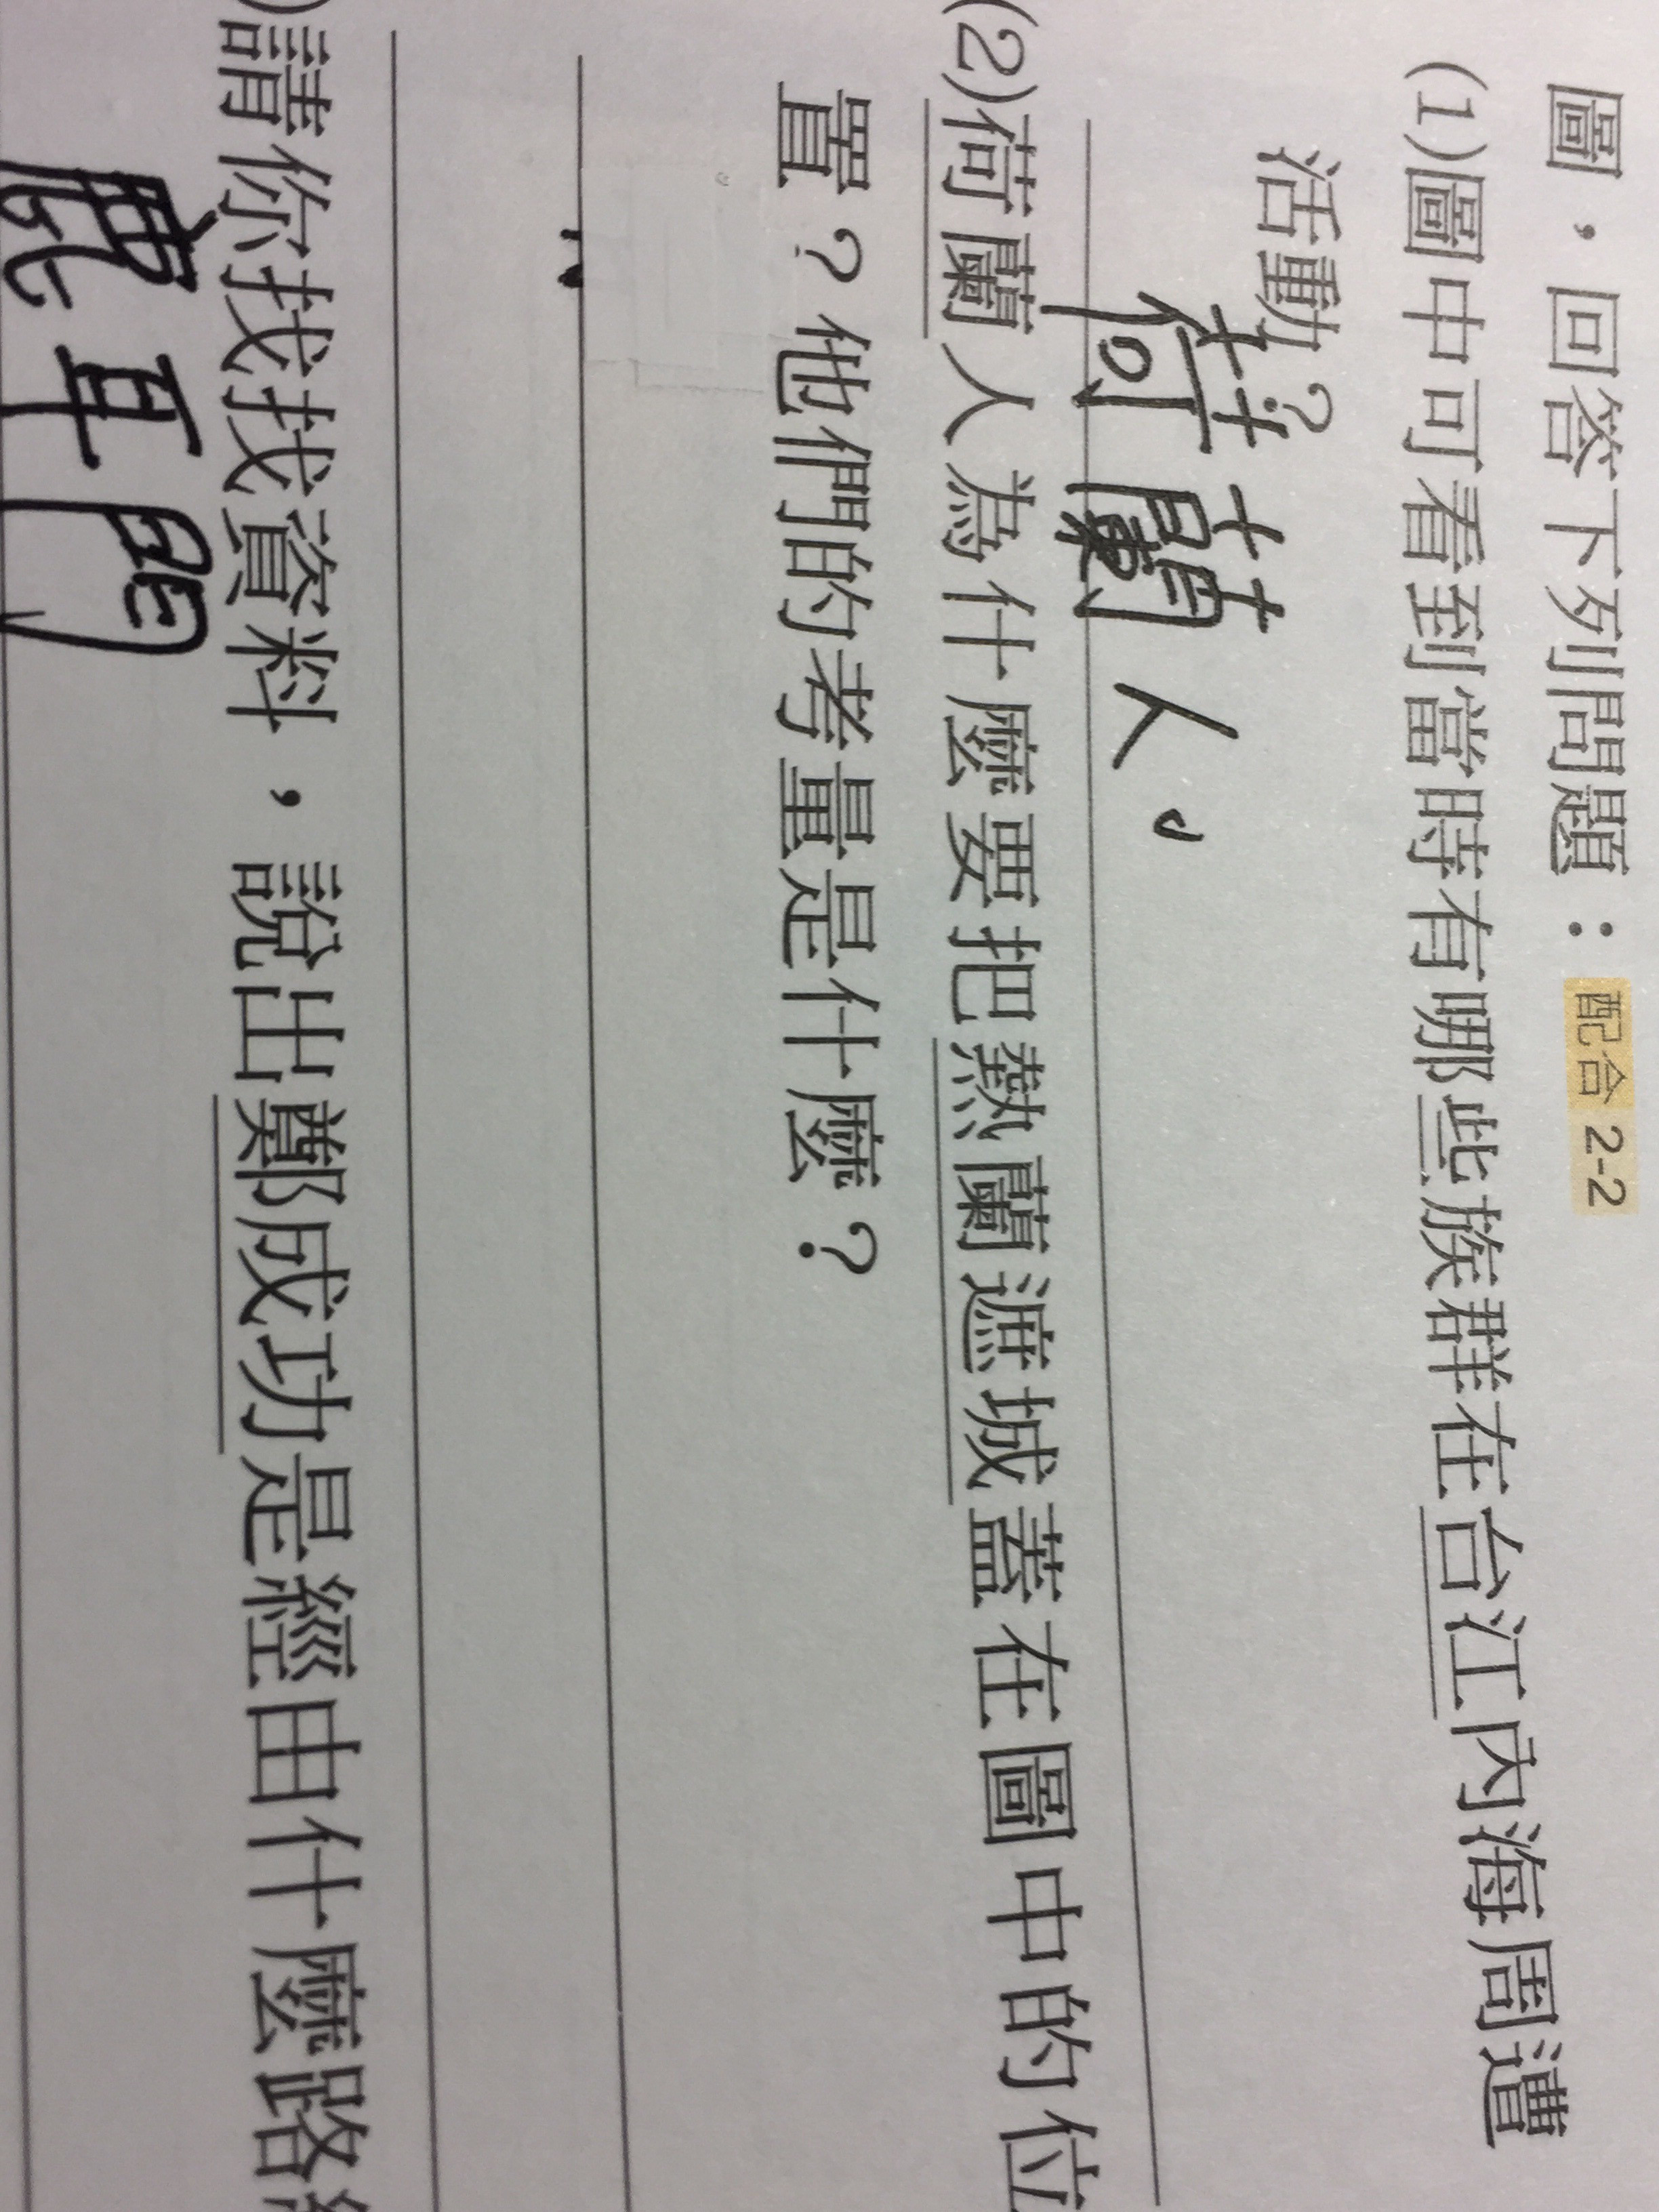 圖，回答下列問題：配合 2-2
(1)圖中可看到當時有哪些族群在台江內海周遭
活動？
荷蘭人。
(2)荷蘭人為什麼要把熱蘭遮城蓋在圖中的位
置？他們的考量是什麼？
)請你找找資料，說出鄭成功是經由什麼路
鹿耳門